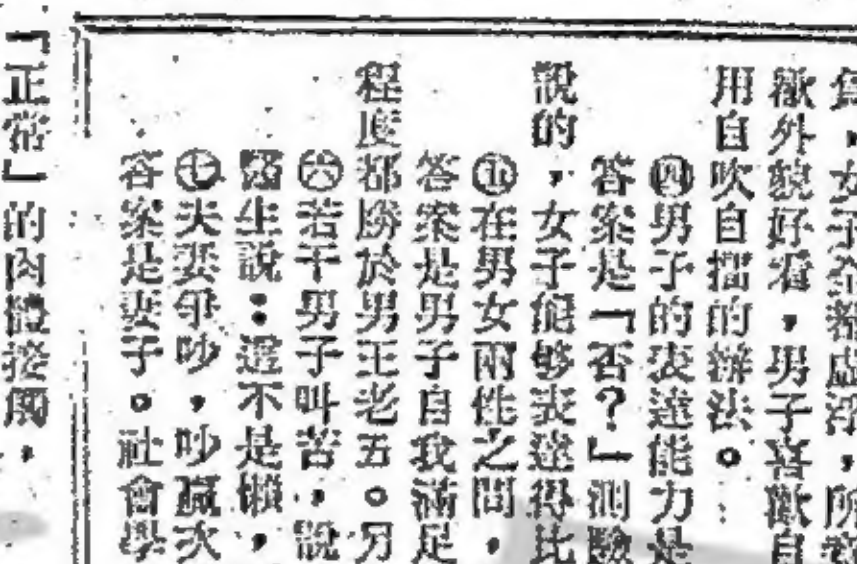 負,女子全都虛浮,所
歡外貌好看,男子喜歡自
用自吹自擂的辦法。
㊃男子的表達能力是
答案是「否?」測驗
說的,女子能够表達得比
㊄在男女兩性之間,
答案是男子自我滿足
程度都勝於男王老五。另
㊅若干男子叫苦,說
醫生說:這不是懶,
㊆夫妻爭吵,吵贏次
答案是妻子。社會學
「正常」的肉體接觸,